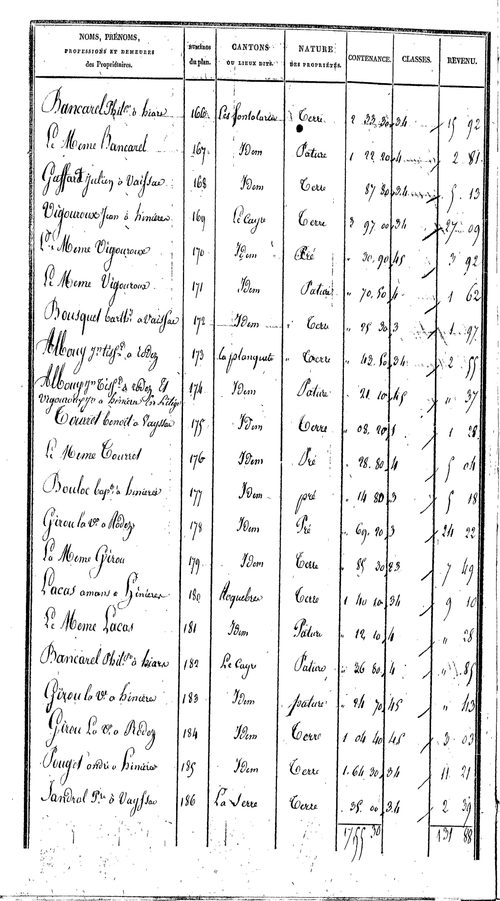 NOMS, PRÉNOMS, PROFESSIONS ET DEMEURES des Propriétaires. | NUMÉROS du plan. | CANTONS OU LIEUX DITS. | NATURE DES PROPRIÉTÉS. | CONTENANCE. | CLASSES. | REVENU.
Bancarel à hiars 166 Les fontolaries Terre 2 33 30 34 15 92
Le Meme Bancarel 167 Idem Pature 1 22 20 4 2 81
Gaffard Julien à Vaissac 168 Idem Terre 87 80 34 5 13
Vigouroux Jean à hinières 169 Le Cayre Terre 3 97 00 34 27 09
Le Meme Vigouroux 170 Idem Pré " 30 90 45 3 92
Le Meme Vigouroux 171 Idem Pature " 70 50 4 1 62
Bousquet à Vaissac 172 Idem Terre " 25 30 3 1 97
Albouy à rodez 173 la planquete Terre " 43 50 34 2 55
Albouy à rodez Et
174 Idem Pature " 21 10 45 " 37
Tourret benoit à Vayssac 175 Idem Terre " 08 20 1 28
Le Meme Tourret 176 Idem Pré " 28 80 4 5 04
Bouloc à hinières 177 Idem pré " 14 80 3 5 18
Girou la ve à Rodez 178 Idem Pré " 69 20 3 24 22
La Meme Girou 179 Idem Terre " 85 30 23 7 49
Lacas amans à hinières 180 Roquebres Terre 1 40 10 34 9 10
Le Meme Lacas 181 Idem Pature " 12 10 4 " 28
Bancarel à hiars 182 Le Cayre Pature " 36 80 4 " 85
Girou la ve à hinières 183 Idem pature " 24 70 45 " 43
Girou La ve à Rodez 184 Idem Terre 1 04 40 45 3 03
Pouget andré à hinières 185 Idem Terre 1 64 30 34 11 21
Jandral à Vayssac 186 La Serre Terre " 35 00 34 2 39
131 88